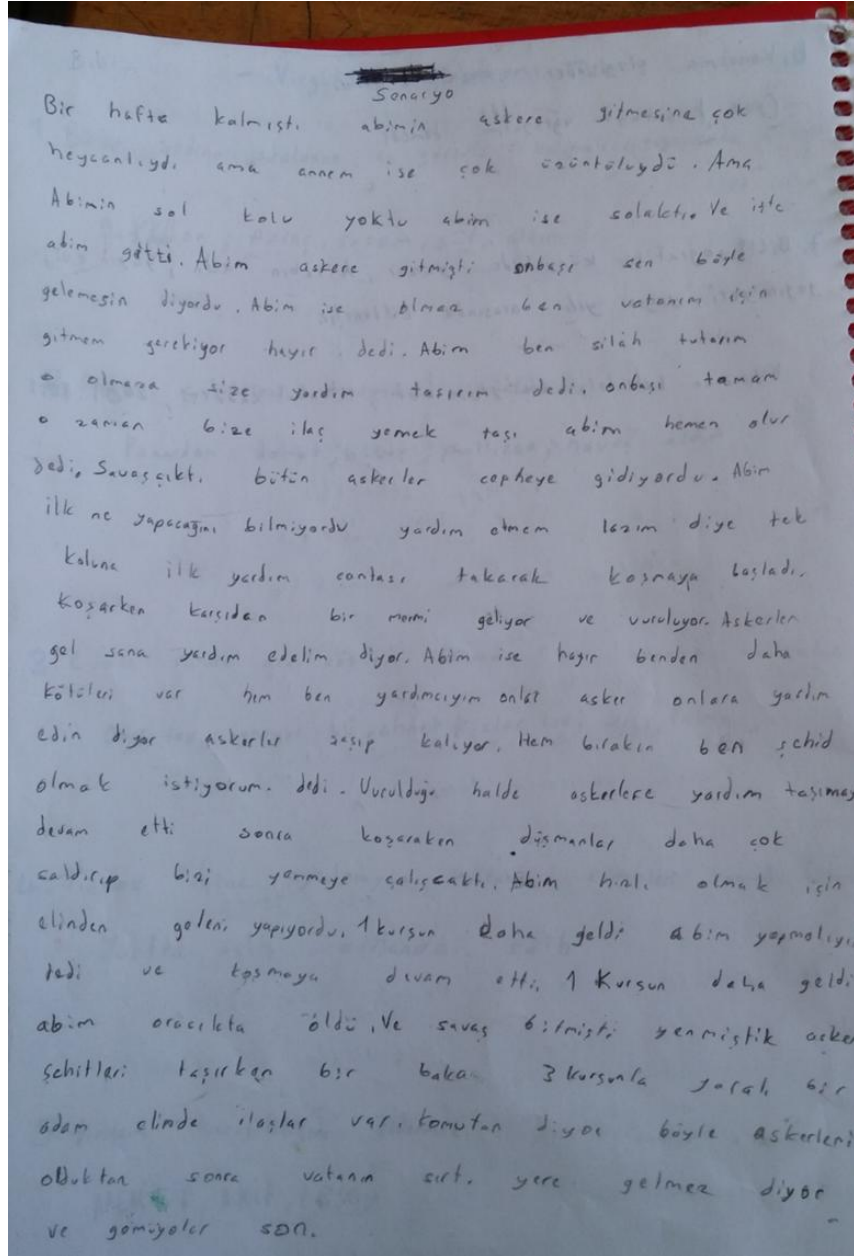 Senaryo
Bir hafta kalmıştı abimin askere gitmesine çok
heycanlıydı ama annem ise çok üzüntülüydü. Ama
Abimin sol kolu yoktu abim ise solaktı. Ve işte
abim gitti. Abim askere gitmişti onbaşı sen böyle
gelemesin diyordu. Abim ise olmaz ben vatanım için
gitmem gerekiyor hayır dedi. Abim ben silah tutarım
o olmaza size yardım taşırım dedi. onbaşı tamam
o zaman bize ilaç yemek taşı abim hemen olur
dedi. Savaş çıktı bütün askerler cepheye gidiyordu. Abim
ilk ne yapacağını bilmiyordu yardım etmem lazım diye tek
koluna ilk yardım çantası takarak koşmaya başladı.
Koşarken karşıdan bir mermi geliyor ve vuruluyor. Askerler
gel sana yardım edelim diyor. Abim ise hayır benden daha
kötüleri var hem ben yardımcıyım onlar asker onlara yardım
edin diyor askerler şaşıp kalıyor. Hem bırakın ben şehid
olmak istiyorum. dedi. Vurulduğu halde askerlere yardım taşımay
devam etti sonra koşaraken düşmanlar daha çok
saldırıp bizi yenmeye çalışcaktı. Abim hızlı olmak için
elinden geleni yapıyordu. 1 kurşun daha geldi abim yapmalıyı
dedi ve koşmaya devam etti. 1 Kurşun daha geldi
abim oracıkta öldü. Ve savaş bitmişti yenmiştik aske
şehitleri taşırken bir baka 3 kurşunla yaralı bir
adam elinde ilaçlar var. Komutan diyor böyle askerleri
olduktan sonra vatanın sırtı yere gelmez diyor
ve gömüyolar son.